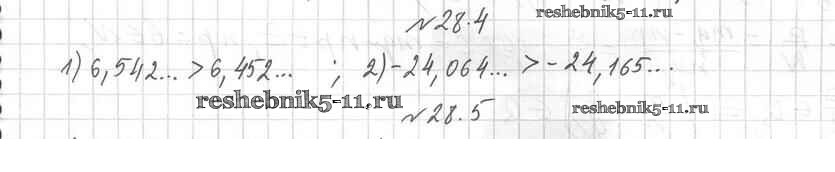 №28.4
reshebnik5-11.ru
1) 6,542... > 6,452... ; 2) -24,064... > -24,165...
reshebnik5-11.ru
reshebnik5-11.ru
№28.5